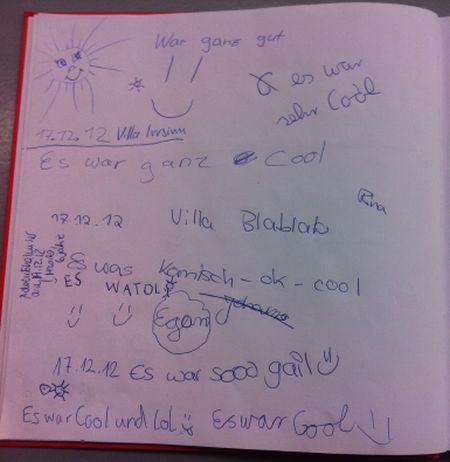 War ganz gut
es war
sehr Cool
17.12.12 Villa
Es war ganz Cool
17.12.12 Villa Blablab
was Komisch-ok-cool
ES WATOL
Egon
17.12.12 Es war sooo gail
Es war Cool und Lol Es war Cool